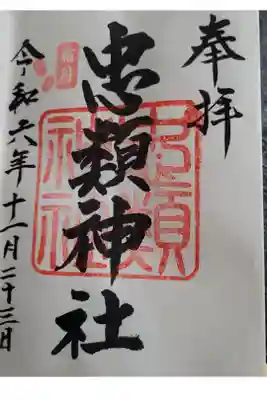 奉拝
忠類神社
令和六年十一月二十三日
霜月
忠類神社